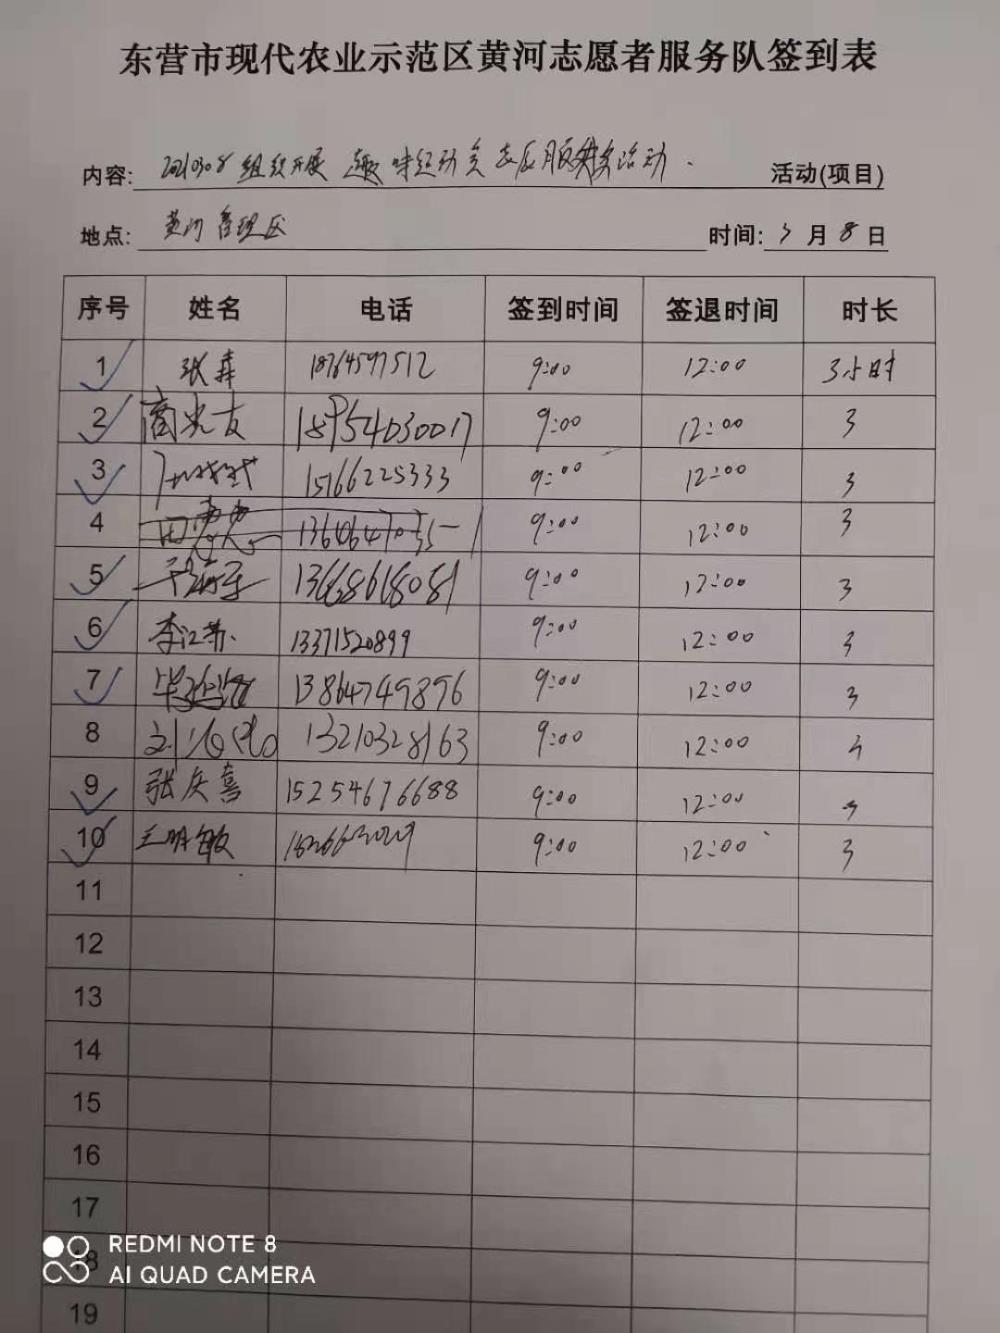 东营市现代农业示范区黄河志愿者服务队签到表
内容: 20210308 组织开展 趣味运动会志愿服务活动. 活动(项目)
地点: 黄河管理区 时间: 3月8日
序号 姓名 电话 签到时间 签退时间 时长
1 张森 18764597512 9:00 12:00 3小时
2 商光友 18954030017 9:00 12:00 3
3 15166225333 9:00 12:00 3
4 9:00 12:00 3
5 13668618081 9:00 12:00 3
6 李江苏 13371520899 9:00 12:00 3
7 13864749896 9:00 12:00 3
8 13210328163 9:00 12:00 3
9 张庆喜 15254676688 9:00 12:00 3
10 王明敏 9:00 12:00 3
11
12
13
14
15
16
17
18
19
REDMI NOTE 8
AI QUAD CAMERA